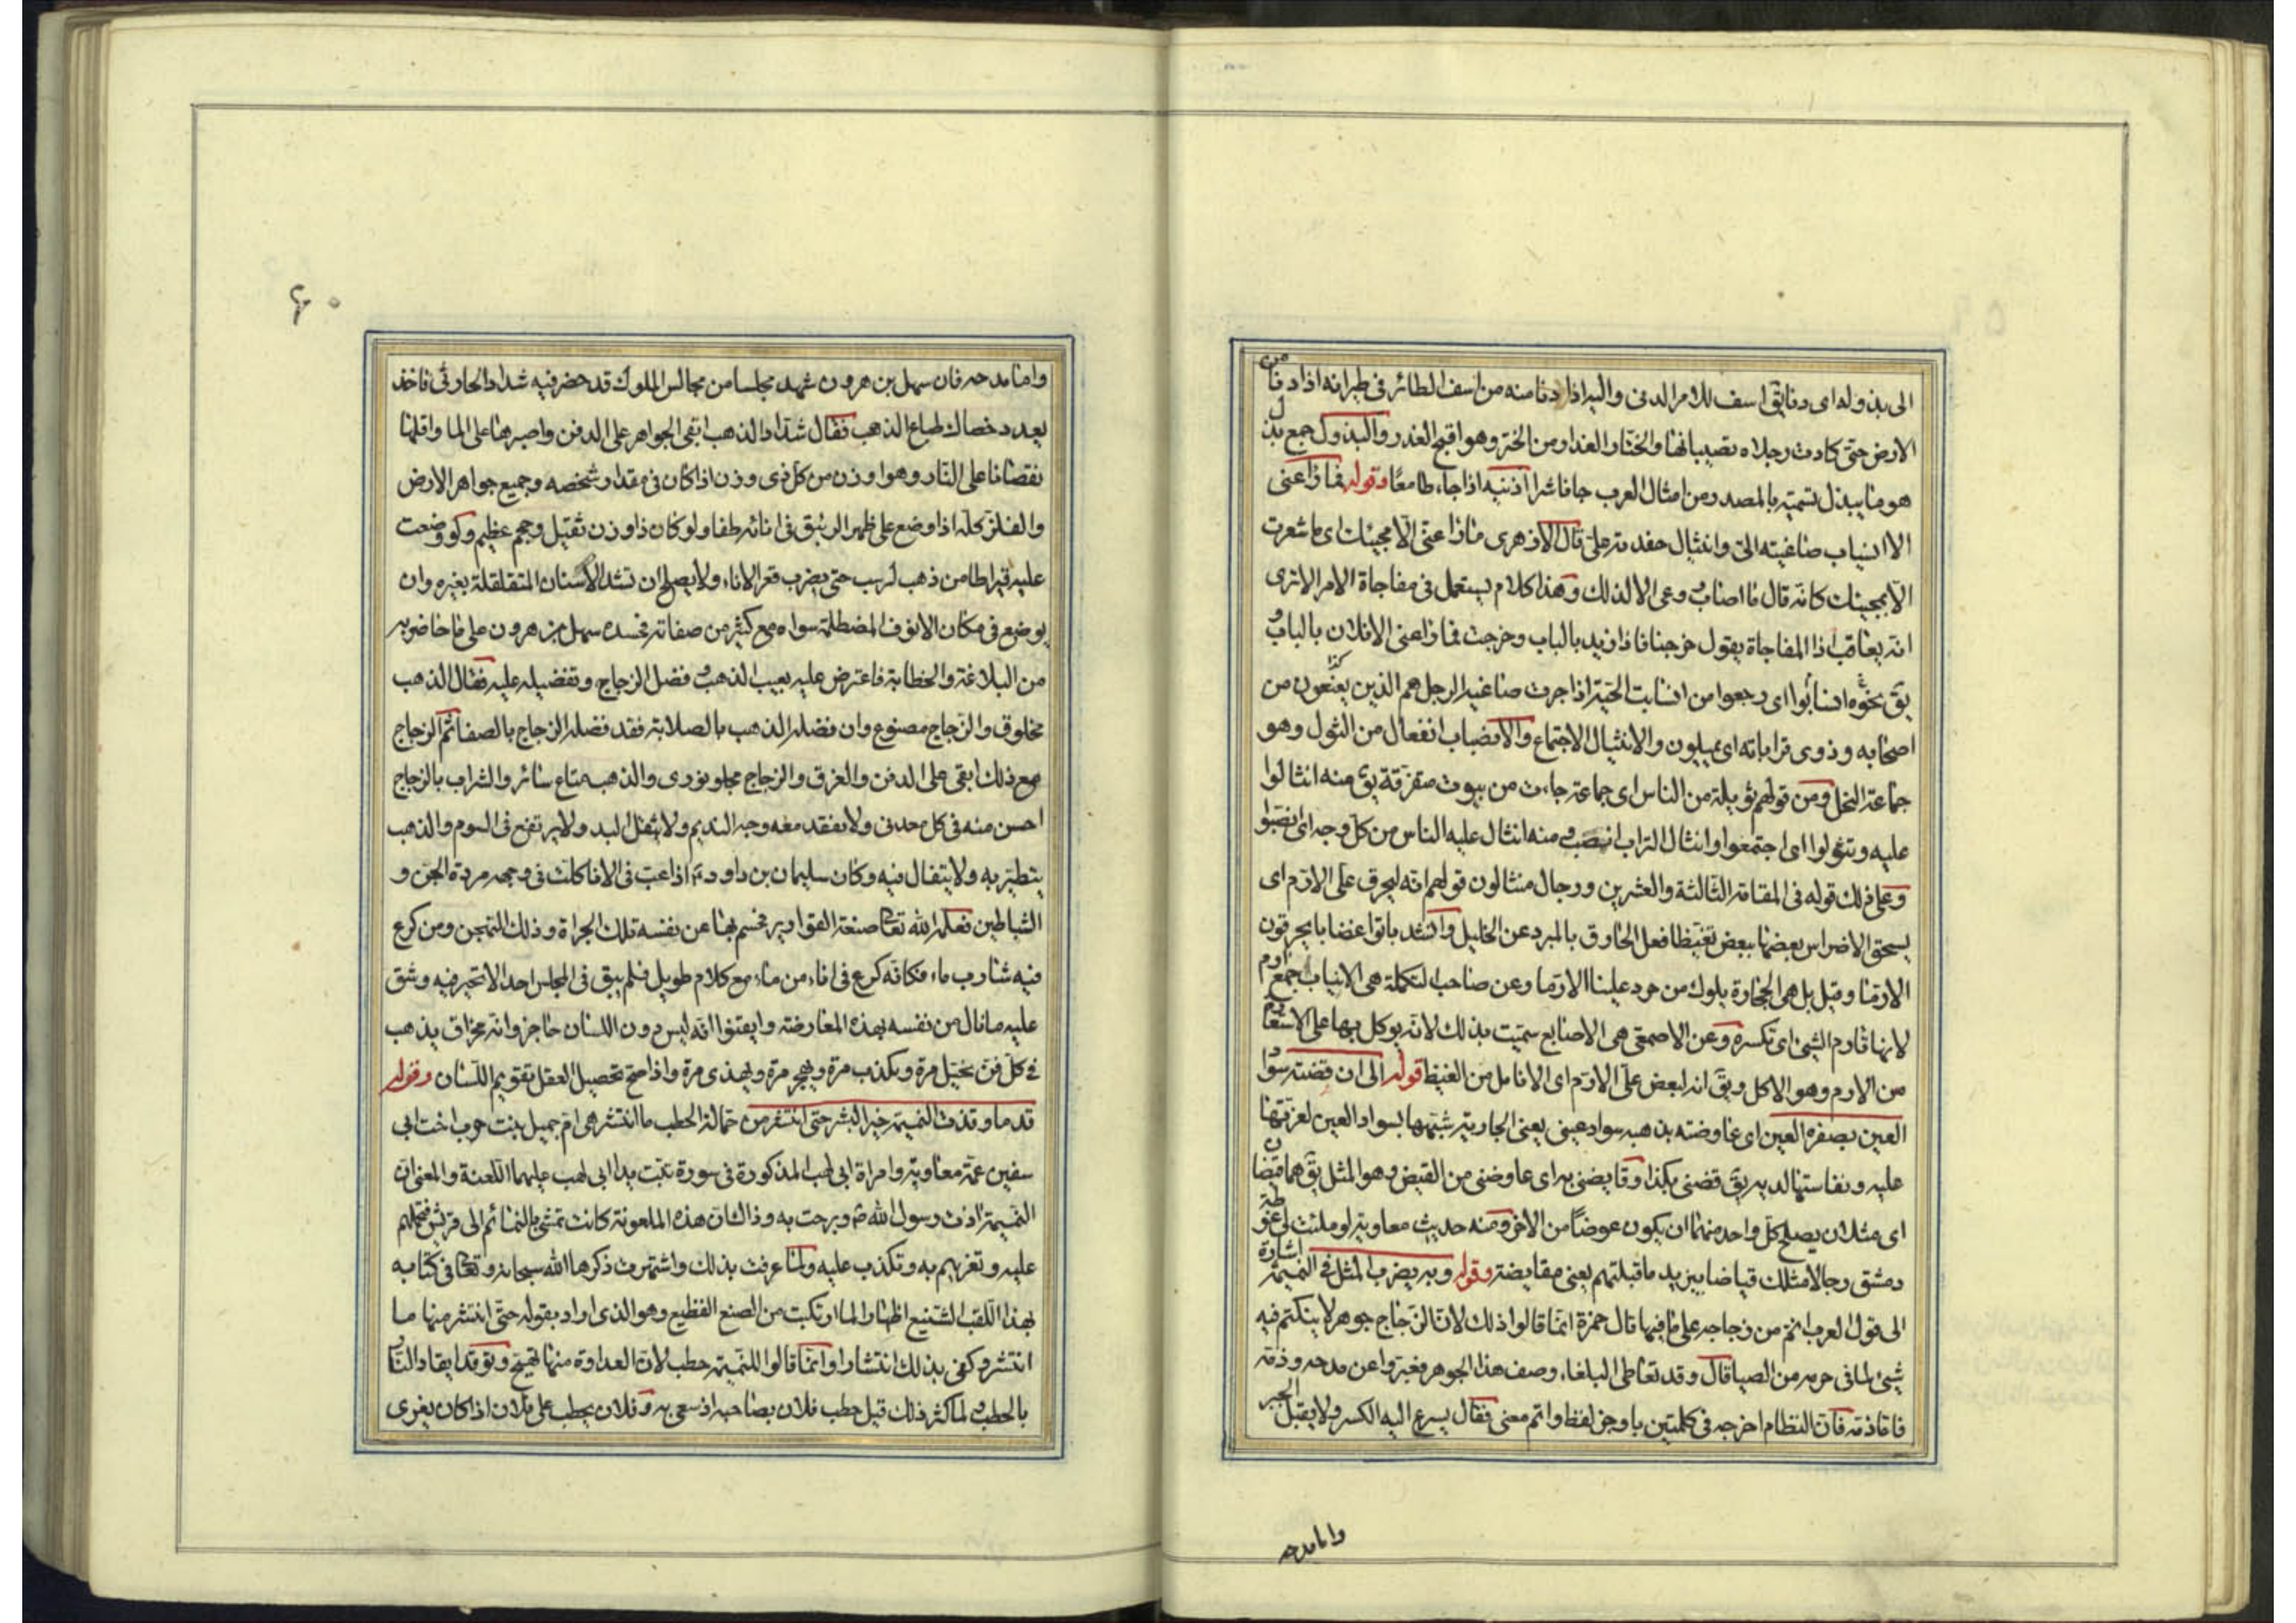 الى بذوله اى دنا يقٓ اسف للامر الدنى واليه اذا دنا منه من اسف الطائر فى طيرانه اذا دنا من
الارض حتى كادت رجلاه تصيبانها والختار الغدار من الختر وهو اقبح الغدر والبذول جمع بذل
هو ما يبذل تسمية بالمصدر ومن امثال العرب جا ناشرا اذنيه اذا جاء طامعًا وقوله فما ذا عنى
الا انسياب صاغيته الىّ وانثيال حفدته علىّ قال الازهرى ماذا عنى الا مجيئك اى ما شعرت
الا بمجيئك كانه قال ما اصناب وعى الا لذلك وهذا كلام يستعمل فى مفاجاة الامر الا ترى
انه يعاقب اذا المفاجاة يقول خرجنا فاذا زيد بالباب وخرجت فما ذا عنى الا فلان بالباب و
يقٓ نحوه انسابوا اى رجعوا من انسابت الحيّة اذا جرت صاغية الرجل هم الذين يصغون من
اصحابه وذوى قراباته اى يميلون والانثيال الاجتماع والانصباب انفعال من الثول وهو
جماعة النحل ومن قولهم ثويلة من الناس اى جماعة جاءت من بيوت متفرّقة يقٓ منه انثالوا
عليه وتثولوا اى اجتمعوا وانثال التراب انصب ومنه انثال عليه الناس من كلّ وجه اى انصبّوا
وعلى ذلك قوله فى المقامة الثالثة والعشرين ورجال منثالون قولهم انه ليحرق على الارّم اى
يسحق الاضراس بعضها ببعض تغيّظا فعل الحارق بالمبرد عن الخليل وانشد باتوا غضابا يحرقون
الارّما وقيل بل هى الحجارة يلوك من حرد علينا الارّما وعن صاحب التكملة هى الانياب جمع ارم
لانها تارم الشئ اى تكسره وعن الاصمعى هى الاصابع سمّيت بذلك لانه يوكل بها على الاستعارة
من الارم وهو الاكل ويقٓ انه ليعض على الارّم اى الانامل من الغيظ قوله الى ان قضته سواد
العين بصفره العين اى عاوضته بذهبه سواد عينى يعنى الجارية شبّهها بسواد العين لعزّتها
عليه ونفاستها لديه يقٓ قضنى بكذا وقايضنى به اى عاوضنى من القيض وهو المثل يقٓ هما قيضان
اى مثلان يصلح كلّ واحد منهما ان يكون عوضًا من الاخر ومنه حديث معاوية لو ملئت لى غوطة
دمشق رجالا مثلك قياضا بيزيد ما قبلتهم يعنى مقايضة وقوله وبه يضرب المثل فى النميمة اشارة
الى قول العرب انمّ من زجاجه على ما فيها قال حمزة انما قالوا ذلك لان الزّجاج جوهر لا ينكتم فيه
شئ لما فى جرمه من الصيا قال وقد تعاطى البلغاء وصف هذا الجوهر فعبّروا عن مدحه وذمّه
فاما ذمّه فان النظام اخرجه فى كلمتين باوجز لفظ واتم معنى فقال يسرع اليه الكسر ولا يقبل الجبر
وامامدحه
٦٠
واما مدحه فان سهل بن هرون شهد مجلسا من مجالس الملوك قد حضر فيه شداد الحارثى فاخذ
يعدد خصال طباع الذهب فقال شداد الذهب ابقى الجواهر على الدفن واصبرها على الما واقلها
نقصانا على النار وهو اوزن من كل ذى وزن اذا كان فى مقدار شخصه وجميع جواهر الارض
والفلز كله اذا وضع على ظهر الزيبق فى انائه طفا ولو كان ذا وزن ثقيل وحجم عظيم ولو وضعت
عليه قيراطا من ذهب لرسب حتى يضرب قعر الاناء ولا يصلح ان تشد الاسنان المتقلقلة بغيره وان
يوضع فى مكان الانوف المصطلمة سواه مع كثير من صفاته فحسده سهل بن هرون على ما حاضر به
من البلاغة والخطابة فاعترض عليه بعيب الذهب وفضل الزجاج وتفضيله عليه فقال الذهب
مخلوق والزجاج مصنوع وان فضله الذهب بالصلابة فقد فضله الزجاج بالصفا ثم الزجاج
مع ذلك ابقى على الدفن والغرق والزجاج مجلو نورى والذهب متاع سائر والشراب بالزجاج
احسن منه فى كل معدنى ولا يفقد معه وجه النديم ولا يثقل اليد ولا يرتفع فى السوم والذهب
يتطيّر به ولا يتفال فيه وكان سليمان بن داود اذا عب فى الانا كلت فى وجهه مردة الجن و
الشياطين فعلمه الله تعالى صنعة القوارير فحسم بها عن نفسه تلك الجراة وذلك التهجن ومن كرع
فيه شارب ماء فكانه كرع فى اناء من ماء مع كلام طويل فلم يبق فى المجلس احد الا تحير فيه وشق
عليه ما نال من نفسه بهذه المعارضة وايقنوا انه ليس دون اللسان حاجز وانه مخراق يذهب
فى كل فن يخيّل مرة ويكذب مرة ويهجر مرة ويهذى مرة واذا صح تحصيل العقل تقويم اللسان وقوله
قد ما وقدت النميمة خير البشر حتى انتشر من حمالة الحطب ما انتشر هى ام جميل بنت حرب اخت ابى
سفين عمّة معاوية وامراة ابى لهب المذكورة فى سورة تبت يدا ابى لهب عليهما اللعنة والمعنى ان
النميمة اذت رسول الله ص وبرحت به وذاك ان هذه الملعونة كانت تمشى بالنمائم الى قريش فتحملهم
عليه وتغريهم به وتكذب عليه ولما عرفت بذلك واشتهرت ذكرها الله سبحانه وتعالى فى كتابه
بهذا اللقب الشنيع اظهارا لما ارتكبت من الصنع الفظيع وهو الذى اراد بقوله حتى انتشر منها ما
انتشر وكفى بذلك انتشارا وانما قالوا للنميمة حطب لان العداوة منها تهيج وتوقد ايقاد النار
بالحطب ولما كثر ذلك قيل حطب فلان بصاحبه اذ سعى به وفلان يحطب على فلان اذا كان يغرى